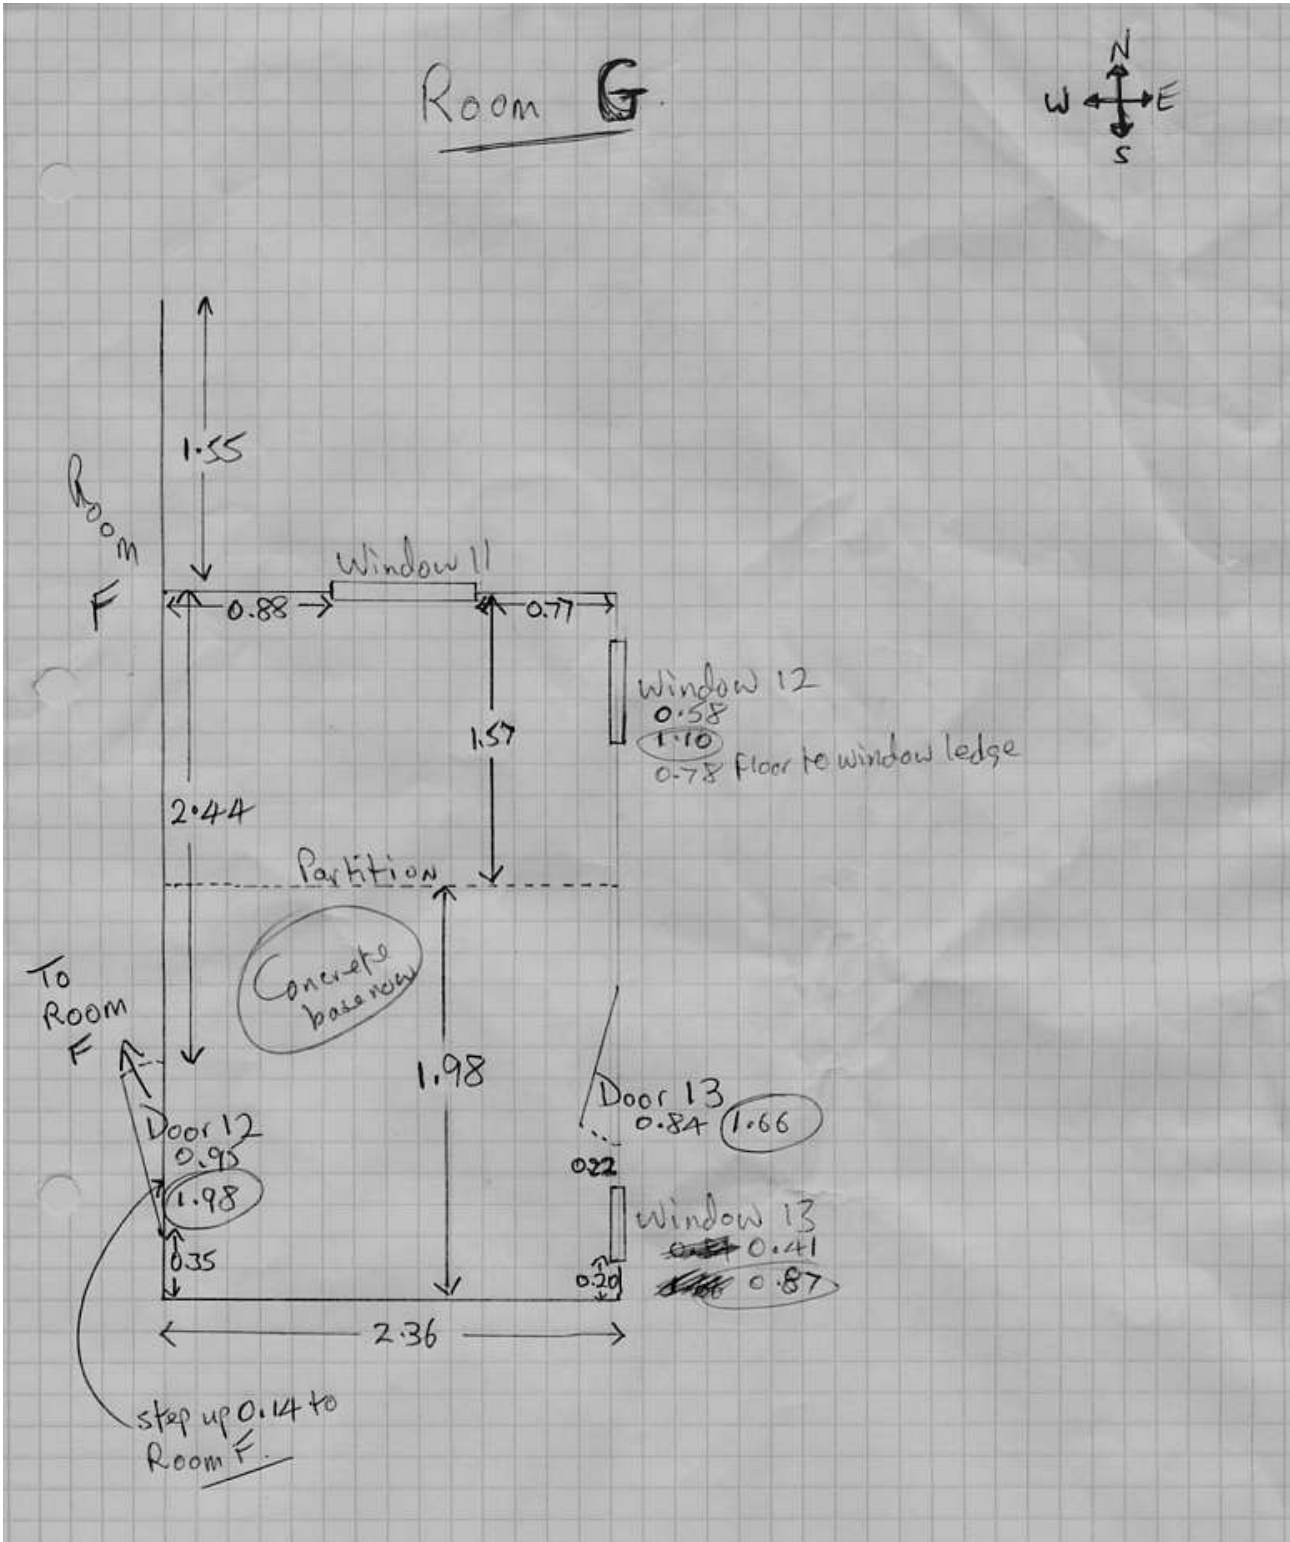 Room G.
N
W E
S
1.55
Room
F
Window 11
0.88
0.77
Window 12
0.58
1.10
0.78 floor to window ledge
1.57
2.44
Partition
Concrete
base now
To
ROOM
F
1.98
Door 13
0.84 1.66
Door 12
0.95
1.98
0.22
Window 13
0.41
0.87
0.35
0.20
2.36
step up 0.14 to
Room F.